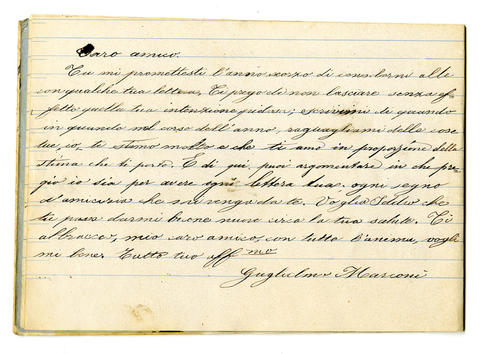 Caro amico.
Tu mi promettesti l'anno scorso di consolarmi alle
con qualche tua lettera. Ti prego di non lasciare senza ef-
fetto quella tua intenzione; scrivimi di quando
in quando nel corso dell'anno, ragguagliami delle cose
tue, io, te stimo molto e che ti amo in proporzione della
stima che ti porto. E di qui, puoi argomentare in che pre-
gio io sia per avere ogni lettera tua, ogni segno
d'amicizia che mi venga da te. Voglia Iddio che
tu possa darmi buone nuove circa la tua salute. Ti
abbraccio, mio caro amico, con tutta l'anima, vogli-
mi bene. Tutto tuo aff mo
Guglielmo Marconi